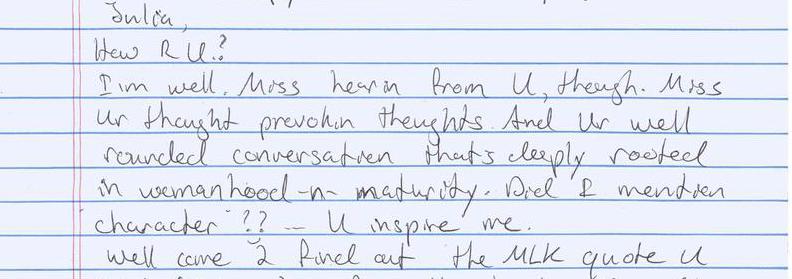 Julia,
How R U.?
I'm well. Miss hearin from U, though. Miss
Ur thought provokin thoughts. And Ur well
rounded conversation that's deeply rooted
in womanhood -n- maturity. Did I mention
"character"?? — U inspire me.
Well come 2 find out the MLK quote U